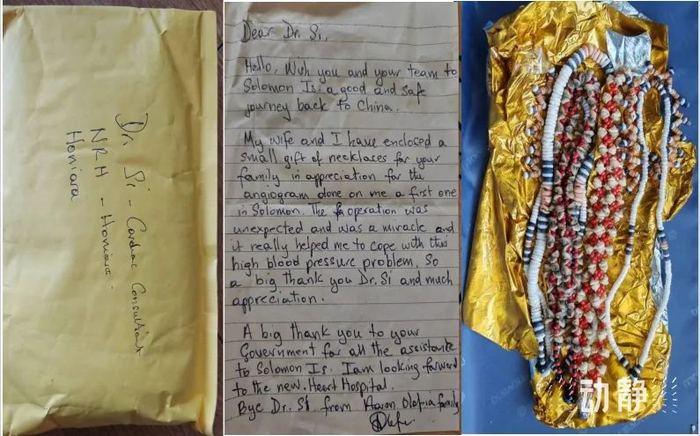 Dr. Si - Cardiac Consultant
NRH - Honiara.
Honiara
Dear Dr. Si,
Hello, Wish you and your team to
Solomon Is. a good and safe
journey back to China.
My wife and I have enclosed a
small gift of necklases for your
family in appreciation for the
angiogram done on me a first one
in Solomon. The operation was
unexpected and was a miracle and
it really helped me to cope with this
high blood pressure problem. So
a big thank you Dr. Si and much
appreciation.
A big thank you to your
Government for all the assistance
to Solomon Is. I am looking forward
to the new Heart Hospital.
Bye Dr. Si from Aaron Olofia family
动静